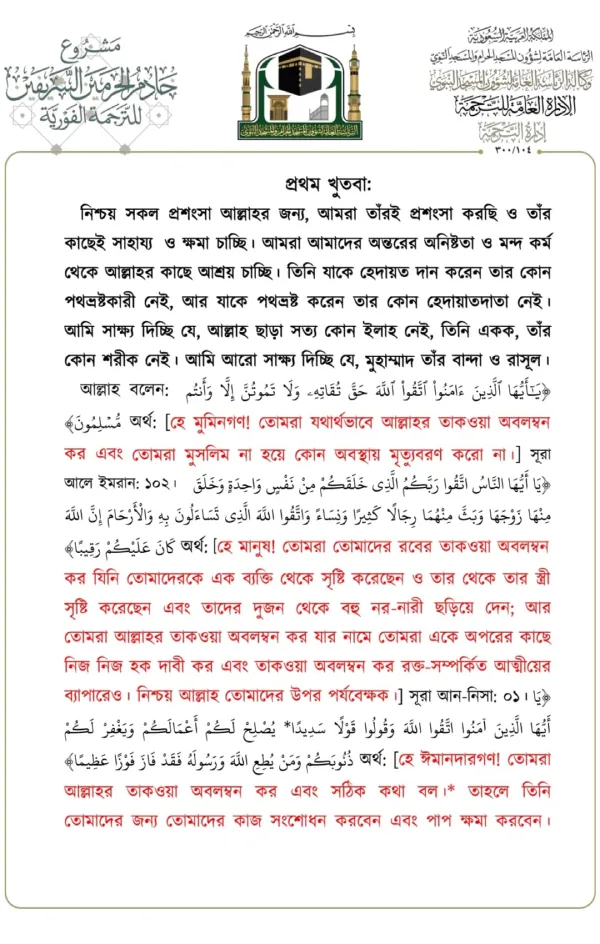 بِسْمِ اللَّهِ الرَّحْمَنِ الرَّحِيمِ
مشروع
خادم الحرمين الشريفين
للترجمة الفورية
المملكة العربية السعودية
الرئاسة العامة لشؤون المسجد الحرام والمسجد النبوي
وكالة الرئاسة العامة لشؤون المسجد النبوي
الإدارة العامة للترجمة
إدارة الترجمة
٣٠٠/١٠٤
الرئاسة العامة لشؤون المسجد الحرام والمسجد النبوي
প্রথম খুতবা:
নিশ্চয় সকল প্রশংসা আল্লাহর জন্য, আমরা তাঁরই প্রশংসা করছি ও তাঁর
কাছেই সাহায্য ও ক্ষমা চাচ্ছি। আমরা আমাদের অন্তরের অনিষ্টতা ও মন্দ কর্ম
থেকে আল্লাহর কাছে আশ্রয় চাচ্ছি। তিনি যাকে হেদায়ত দান করেন তার কোন
পথভ্রষ্টকারী নেই, আর যাকে পথভ্রষ্ট করেন তার কোন হেদায়াতদাতা নেই।
আমি সাক্ষ্য দিচ্ছি যে, আল্লাহ ছাড়া সত্য কোন ইলাহ নেই, তিনি একক, তাঁর
কোন শরীক নেই। আমি আরো সাক্ষ্য দিচ্ছি যে, মুহাম্মাদ তাঁর বান্দা ও রাসূল।
আল্লাহ বলেন: ﴿يَـٰٓأَيُّهَا ٱلَّذِينَ ءَامَنُوا۟ ٱتَّقُوا۟ ٱللَّهَ حَقَّ تُقَاتِهِۦ وَلَا تَمُوتُنَّ إِلَّا وَأَنتُم
مُّسْلِمُونَ﴾ অর্থ: [হে মুমিনগণ! তোমরা যথার্থভাবে আল্লাহর তাকওয়া অবলম্বন
কর এবং তোমরা মুসলিম না হয়ে কোন অবস্থায় মৃত্যুবরণ করো না।] সূরা
আলে ইমরান: ১০২। ﴿يَا أَيُّهَا النَّاسُ اتَّقُوا رَبَّكُمُ الَّذِي خَلَقَكُمْ مِنْ نَفْسٍ وَاحِدَةٍ وَخَلَقَ
مِنْهَا زَوْجَهَا وَبَثَّ مِنْهُمَا رِجَالًا كَثِيرًا وَنِسَاءً وَاتَّقُوا اللَّهَ الَّذِي تَسَاءَلُونَ بِهِ وَالْأَرْحَامَ إِنَّ اللَّهَ
كَانَ عَلَيْكُمْ رَقِيبًا﴾ অর্থ: [হে মানুষ! তোমরা তোমাদের রবের তাকওয়া অবলম্বন
কর যিনি তোমাদেরকে এক ব্যক্তি থেকে সৃষ্টি করেছেন ও তার থেকে তার স্ত্রী
সৃষ্টি করেছেন এবং তাদের দুজন থেকে বহু নর-নারী ছড়িয়ে দেন; আর
তোমরা আল্লাহর তাকওয়া অবলম্বন কর যার নামে তোমরা একে অপরের কাছে
নিজ নিজ হক দাবী কর এবং তাকওয়া অবলম্বন কর রক্ত-সম্পর্কিত আত্মীয়ের
ব্যাপারেও। নিশ্চয় আল্লাহ তোমাদের উপর পর্যবেক্ষক।] সূরা আন-নিসা: ০১। ﴿يَا
أَيُّهَا الَّذِينَ آمَنُوا اتَّقُوا اللَّهَ وَقُولُوا قَوْلًا سَدِيدًا* يُصْلِحْ لَكُمْ أَعْمَالَكُمْ وَيَغْفِرْ لَكُمْ
ذُنُوبَكُمْ وَمَنْ يُطِعِ اللَّهَ وَرَسُولَهُ فَقَدْ فَازَ فَوْزًا عَظِيمًا﴾ অর্থ: [হে ঈমানদারগণ! তোমরা
আল্লাহর তাকওয়া অবলম্বন কর এবং সঠিক কথা বল।* তাহলে তিনি
তোমাদের জন্য তোমাদের কাজ সংশোধন করবেন এবং পাপ ক্ষমা করবেন।